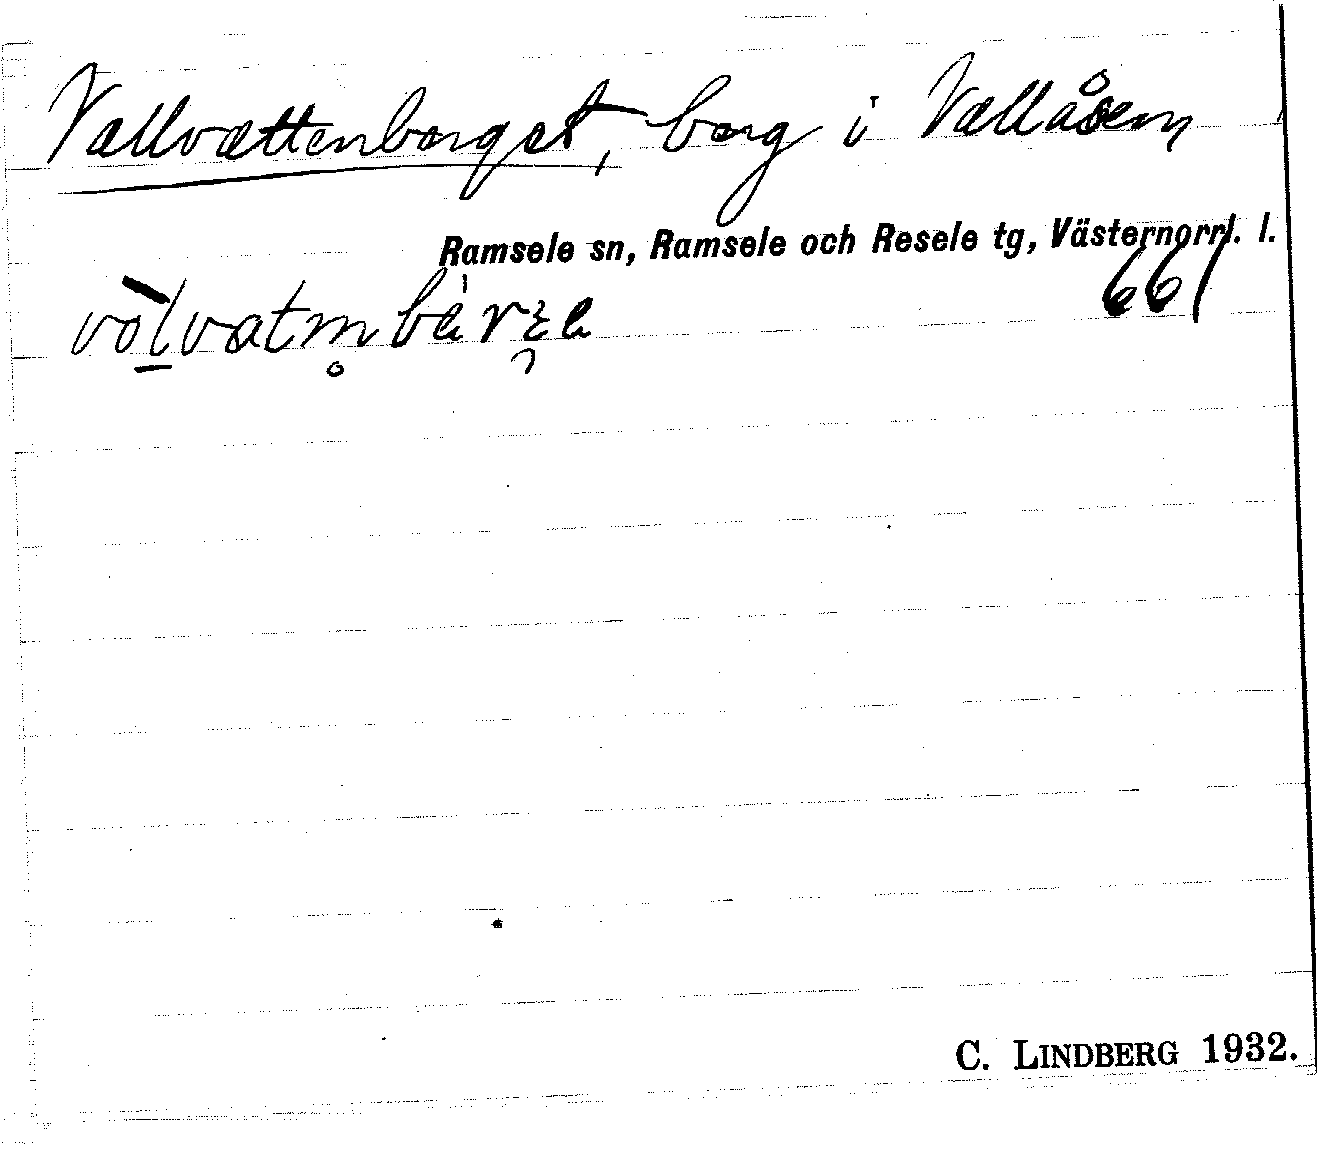 Vallvattenberget, berg i Vallåsen
Ramsele sn, Ramsele och Resele tg, Västernorrl. l.
661
C. LINDBERG 1932.